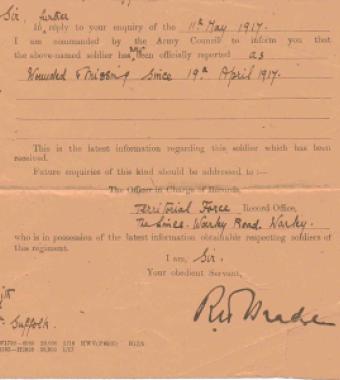 Sir, further
In reply to your enquiry of the 11th May 1917.
I am commanded by the Army Council to inform you that
the above-named soldier has been officially reported as
Wounded & Missing since 19th April 1917.
This is the latest information regarding this soldier which has been
received.
Future enquiries of this kind should be addressed to :—
The Officer in Charge of Records,
Territorial Force Record Office,
Road,
who is in possession of the latest information obtainable respecting soldiers of
this regiment.
I am, Sir.
Your obedient Servant,
Suffolk.